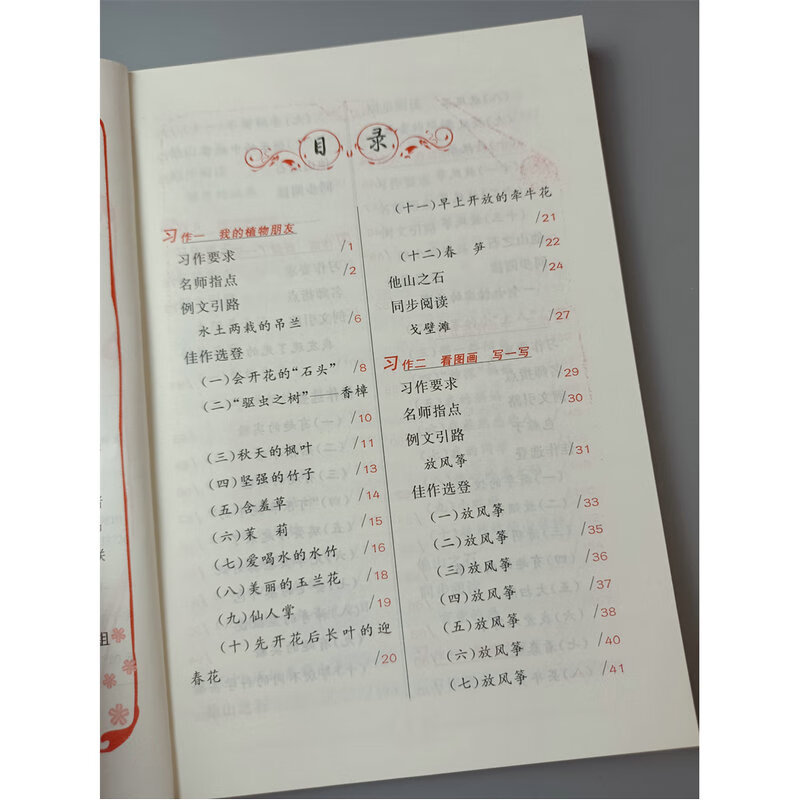 目录
习作一 我的植物朋友
习作要求 /1
名师指点 /2
例文引路
水土两栽的吊兰 /6
佳作选登
(一)会开花的“石头” /8
(二)“驱虫之树”——香樟
/10
(三)秋天的枫叶 /11
(四)坚强的竹子 /13
(五)含羞草 /14
(六)茉 莉 /15
(七)爱喝水的水竹 /16
(八)美丽的玉兰花 /18
(九)仙人掌 /19
(十)先开花后长叶的迎
春花 /20
(十一)早上开放的牵牛花
/21
(十二)春 笋 /22
他山之石 /24
同步阅读
戈壁滩 /27
习作二 看图画 写一写
习作要求 /29
名师指点 /30
例文引路
放风筝 /31
佳作选登
(一)放风筝 /33
(二)放风筝 /35
(三)放风筝 /36
(四)放风筝 /37
(五)放风筝 /38
(六)放风筝 /40
(七)放风筝 /41